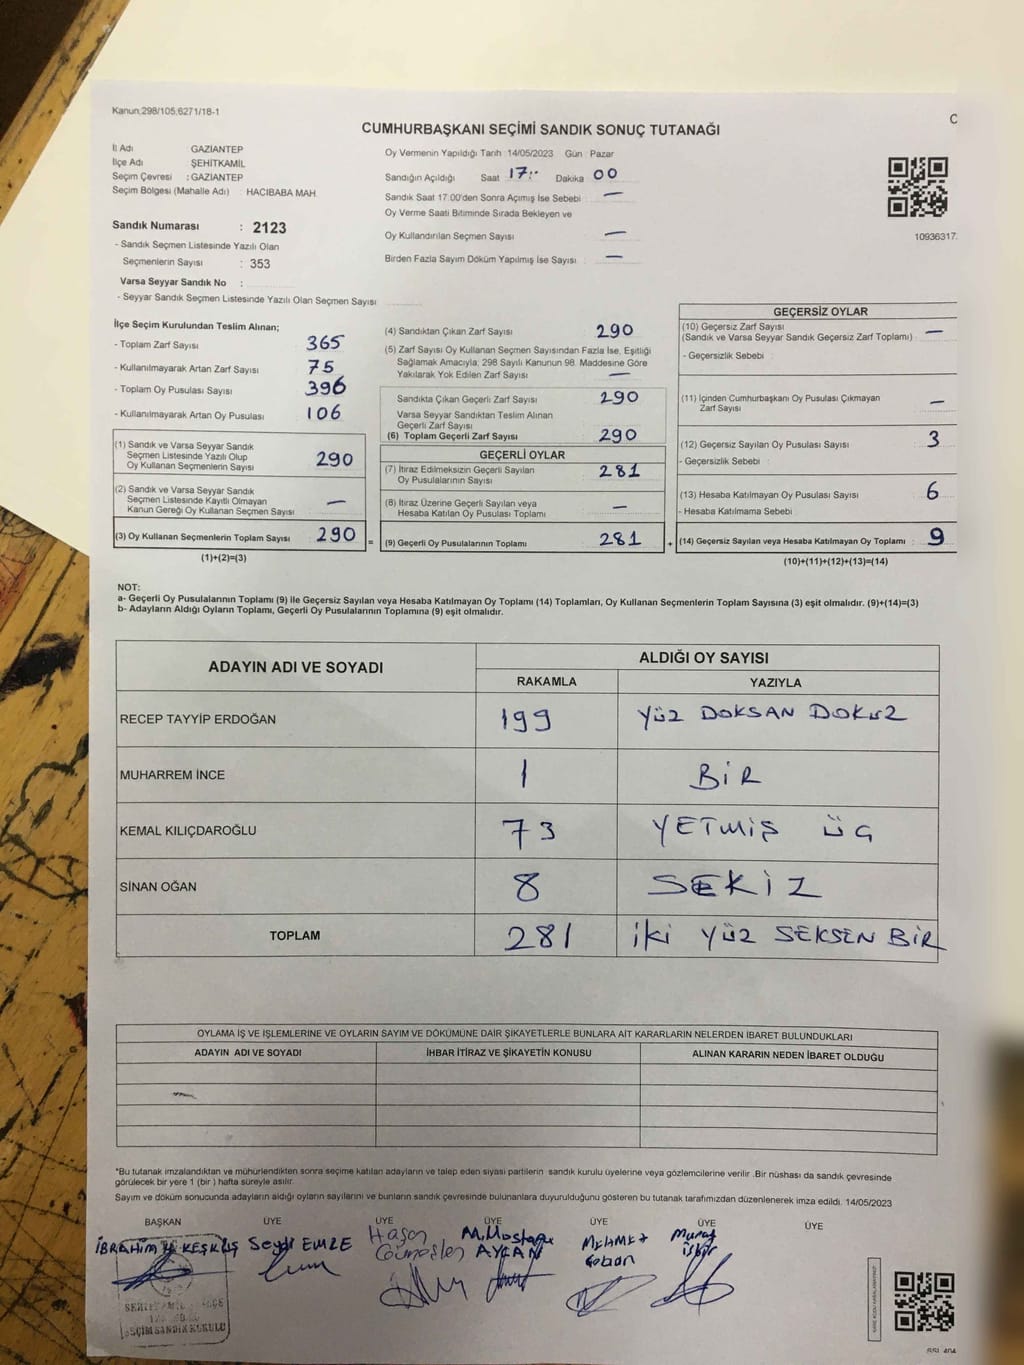 Kanun:298/105;6271/18-1
C
CUMHURBAŞKANI SEÇİMİ SANDIK SONUÇ TUTANAĞI
İl Adı GAZİANTEP
İlçe Adı ŞEHİTKAMİL
Seçim Çevresi : GAZİANTEP
Seçim Bölgesi (Mahalle Adı) : HACIBABA MAH.
Sandık Numarası : 2123
- Sandık Seçmen Listesinde Yazılı Olan
Seçmenlerin Sayısı : 353
Varsa Seyyar Sandık No :
- Seyyar Sandık Seçmen Listesinde Yazılı Olan Seçmen Sayısı
Oy Vermenin Yapıldığı Tarih 14/05/2023 Gün Pazar
Sandığın Açıldığı Saat 17:- Dakika 00
Sandık Saat 17:00'den Sonra Açımış İse Sebebi —
Oy Verme Saati Bitiminde Sırada Bekleyen ve
Oy Kullandırılan Seçmen Sayısı —
Birden Fazla Sayım Döküm Yapılmış İse Sayısı —
10936317
İlçe Seçim Kurulundan Teslim Alınan;
- Toplam Zarf Sayısı 365
- Kullanılmayarak Artan Zarf Sayısı 75
- Toplam Oy Pusulası Sayısı 396
- Kullanılmayarak Artan Oy Pusulası 106
(1) Sandık ve Varsa Seyyar Sandık
Seçmen Listesinde Yazılı Olup
Oy Kullanan Seçmenlerin Sayısı 290
(2) Sandık ve Varsa Seyyar Sandık
Seçmen Listesinde Kayıtlı Olmayan
Kanun Gereği Oy Kullanan Seçmen Sayısı —
(3) Oy Kullanan Seçmenlerin Toplam Sayısı 290 =
(1)+(2)=(3)
(4) Sandıktan Çıkan Zarf Sayısı 290
(5) Zarf Sayısı Oy Kullanan Seçmen Sayısından Fazla İse, Eşitliği
Sağlamak Amacıyla, 298 Sayılı Kanunun 98. Maddesine Göre
Yakılarak Yok Edilen Zarf Sayısı —
Sandıkta Çıkan Geçerli Zarf Sayısı 290
Varsa Seyyar Sandıktan Teslim Alınan
Geçerli Zarf Sayısı
(6) Toplam Geçerli Zarf Sayısı 290
GEÇERLİ OYLAR
(7) İtiraz Edilmeksizin Geçerli Sayılan
Oy Pusulalarının Sayısı 281
(8) İtiraz Üzerine Geçerli Sayılan veya
Hesaba Katılan Oy Pusulası Toplamı —
(9) Geçerli Oy Pusulalarının Toplamı 281 +
GEÇERSİZ OYLAR
(10) Geçersiz Zarf Sayısı
(Sandık ve Varsa Seyyar Sandık Geçersiz Zarf Toplamı) —
- Geçersizlik Sebebi
(11) İçinden Cumhurbaşkanı Oy Pusulası Çıkmayan
Zarf Sayısı —
(12) Geçersiz Sayılan Oy Pusulası Sayısı 3
- Geçersizlik Sebebi :
(13) Hesaba Katılmayan Oy Pusulası Sayısı 6
- Hesaba Katılmama Sebebi
(14) Geçersiz Sayılan veya Hesaba Katılmayan Oy Toplamı 9
(10)+(11)+(12)+(13)=(14)
NOT:
a- Geçerli Oy Pusulalarının Toplamı (9) ile Geçersiz Sayılan veya Hesaba Katılmayan Oy Toplamı (14) Toplamları, Oy Kullanan Seçmenlerin Toplam Sayısına (3) eşit olmalıdır. (9)+(14)=(3)
b- Adayların Aldığı Oyların Toplamı, Geçerli Oy Pusulalarının Toplamına (9) eşit olmalıdır.
ADAYIN ADI VE SOYADI
ALDIĞI OY SAYISI
RAKAMLA YAZIYLA
RECEP TAYYİP ERDOĞAN 199 YÜZ DOKSAN DOKUZ
MUHARREM İNCE 1 BİR
KEMAL KILIÇDAROĞLU 73 YETMİŞ ÜÇ
SİNAN OĞAN 8 SEKİZ
TOPLAM 281 İKİ YÜZ SEKSEN BİR
OYLAMA İŞ VE İŞLEMLERİNE VE OYLARIN SAYIM VE DÖKÜMÜNE DAİR ŞİKAYETLERLE BUNLARA AİT KARARLARIN NELERDEN İBARET BULUNDUKLARI
ADAYIN ADI VE SOYADI İHBAR İTİRAZ VE ŞİKAYETİN KONUSU ALINAN KARARIN NEDEN İBARET OLDUĞU
*Bu tutanak imzalandıktan ve mühürlendikten sonra seçime katılan adayların ve talep eden siyasi partilerin sandık kurulu üyelerine veya gözlemcilerine verilir .Bir nüshası da sandık çevresinde
görülecek bir yere 1 (bir) hafta süreyle asılır.
Sayım ve döküm sonucunda adayların aldığı oyların sayılarını ve bunların sandık çevresinde bulunanlara duyurulduğunu gösteren bu tutanak tarafımızdan düzenlenerek imza edildi. 14/05/2023
BAŞKAN ÜYE ÜYE ÜYE ÜYE ÜYE ÜYE
İBRAHİM H KEŞKÜŞ
Seydi EMZE
Hasan
M.Mustafa AYCAN
MEHMET Çoban
Murat
SEÇİM SANDIK KURULU